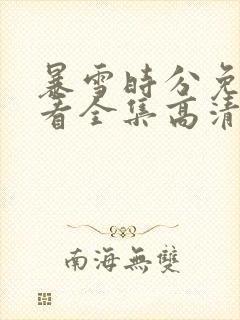 暴雪時分免
看全集高清
南海無雙